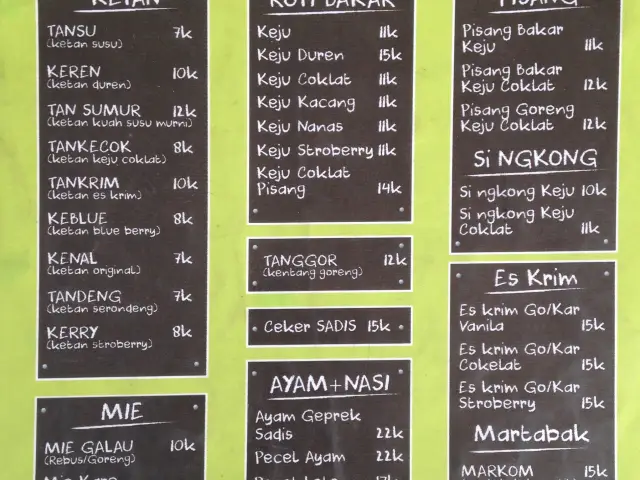 KETAN
TANSU 7k
(ketan susu)
KEREN 10k
(ketan duren)
TAN SUMUR 12k
(ketan kuah susu murni)
TANKECOK 8k
(ketan keju coklat)
TANKRIM 10k
(ketan es krim)
KEBLUE 8k
(ketan blue berry)
KENAL 7k
(ketan original)
TANDENG 7k
(ketan serondeng)
KERRY 8k
(ketan stroberry)
MIE
MIE GALAU 10k
(Rebus/Goreng)
ROTI BAKAR
Keju 11k
Keju Duren 15k
Keju Coklat 11k
Keju Kacang 11k
Keju Nanas 11k
Keju Stroberry 11k
Keju Coklat
Pisang 14k
TANGGOR 12k
(kentang goreng)
Ceker SADIS 15k
AYAM+NASI
Ayam Geprek
Sadis 22k
Pecel Ayam 22k
PISANG
Pisang Bakar
Keju 11k
Pisang Bakar
Keju Coklat 12k
Pisang Goreng
Keju Coklat 12k
Si NGKONG
Si ngkong Keju 10k
Si ngkong Keju
Coklat 11k
Es Krim
Es krim Go/Kar
Vanila 15k
Es krim Go/Kar
Cokelat 15k
Es krim Go/Kar
Stroberry 15k
Martabak
MARKOM 15k